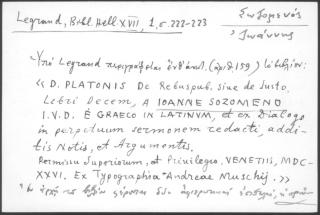 Legrand, Bibl. Hell XVII, 1, σ. 222-223
Σωζομενός
Ἰωάννης
Ὑπό Legrand περιγράφεται ἐνθ' ἀνωτ. (ἀριθ 159) τό βιβλίον:
« D. PLATONIS De Rebuspub. siue de Iusto,
Libri Decem, A IOANNE SOZOMENO
I.V.D. È GRAECO IN LATINVM, et ex Dialogo
in perpetuum sermonem redacti, addi-
tis Notis, et Argumentis.
Permissu Superiorum, et Privilegio, VENETIIS, MDC-
XXVI. Ex Typographia Andreae Muschij. »
ἀρχῇ τοῦ βιβλίου